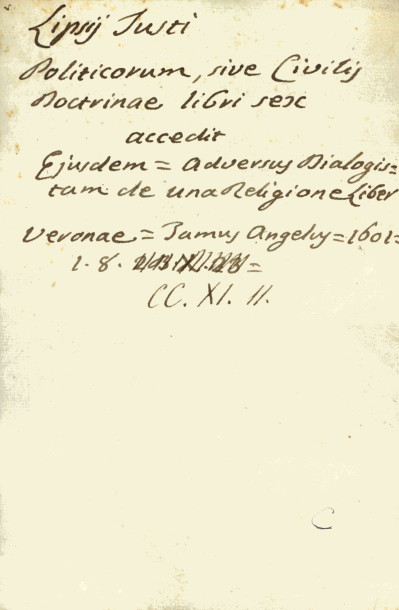 Lipsij Justi
Politicorum, sive Civilis
Doctrinae libri sex
accedit
Ejusdem = adversus Dialogis=
tam de una Religione Liber
Veronae = Tamus Angelus = 1601 =
1. 8. =
CC. XI. II.
C